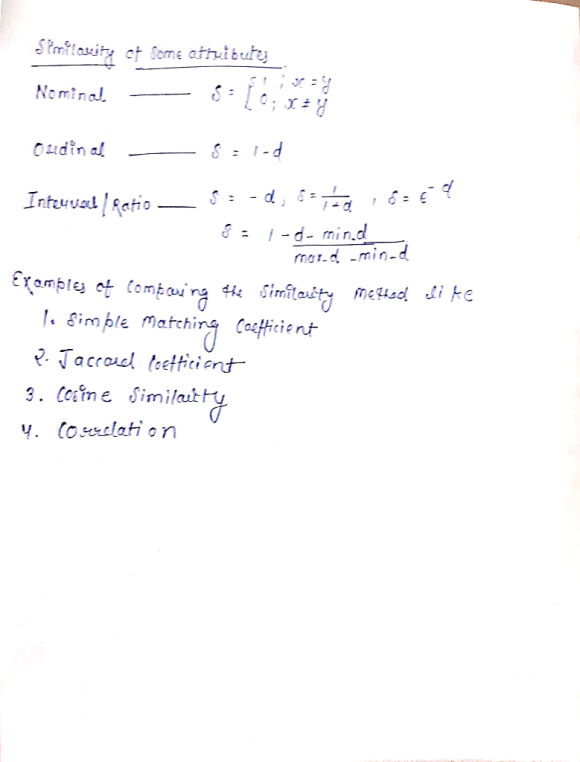 Similarity of Some attributes
Nominal —— S = [ 1 ; x = y
0 ; x ≠ y
Ordinal —— S = 1-d
Interval / Ratio — S = - d, S = 1/1-d , S = e^-d
S = 1 - d - min.d / max.d - min-d
Examples of Comparing the Similarity Method like
1. Simple Matching Coefficient
2. Jaccard Coefficient
3. Cosine Similarity
4. Correlation